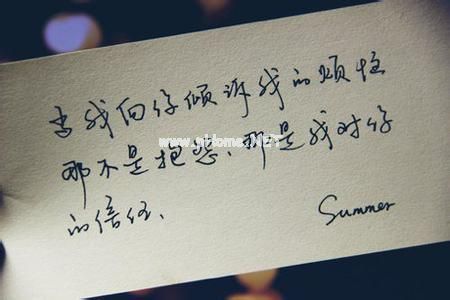 当我向你倾诉我的烦恼
那不是抱怨、那是我对你
的信任、
Summer